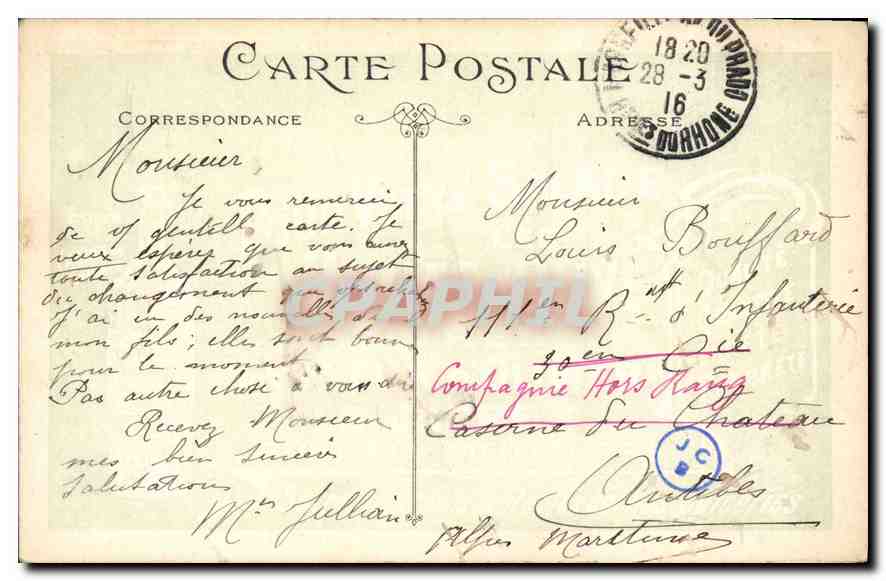 CARTE POSTALE
CORRESPONDANCE
ADRESSE
18 20
28 -3
16
DU RHONE
Monsieur
Je vous remercie
de vf gentille carte. Je
veux espérez que vous aurez
toute satisfaction au sujet
du changement que vous
J'ai eu des nouvelles de
mon fils; elles sont bonne
pour le moment
Pas autre chose à vous dire
Recevez Monsieur
mes bien sincères
salutations
Mme Jullian
Monsieur
Louis Bouffard
111 en R gt d'Infanterie
30 en Cie
Compagnie Hors Rang
Caserne du Chateau
Antibes
Alpes Maritimes
J C
B
CPAPHIL.COM